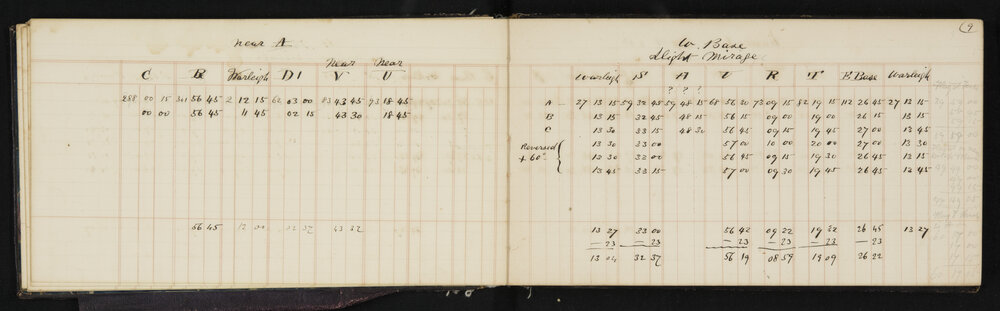 near A
Near Near
C B Warleigh D1 V U
288 00 15 301 56 45 2 12 15 62 03 00 83 43 45 93 18 45
00 00 56 45 11 45 02 15 43 30 18 45
56 45 12 00 02 37 43 37
9
W. Base
Slight Mirage
Warleigh S A U R T E Base Warleigh
? ? ?
A — 27 13 15 59 32 45 59 48 15 68 56 30 73 09 15 82 19 15 112 26 45 27 12 15
B 13 15 32 45 48 15 56 15 09 00 19 00 26 15 13 15
C 13 30 33 15 48 30 56 45 09 15 19 45 27 00 13 45
Reversed 13 30 33 00 57 00 10 00 20 00 27 00 13 30
+ 60° 12 30 33 00 56 45 09 15 19 30 26 45 12 15
13 45 33 15 57 00 09 30 19 45 26 45 12 45
13 27 33 00 56 42 09 22 19 32 26 45 13 27
— 23 — 23 — 23 — 23 — 23 — 23
13 04 32 37 56 19 08 59 19 09 26 22